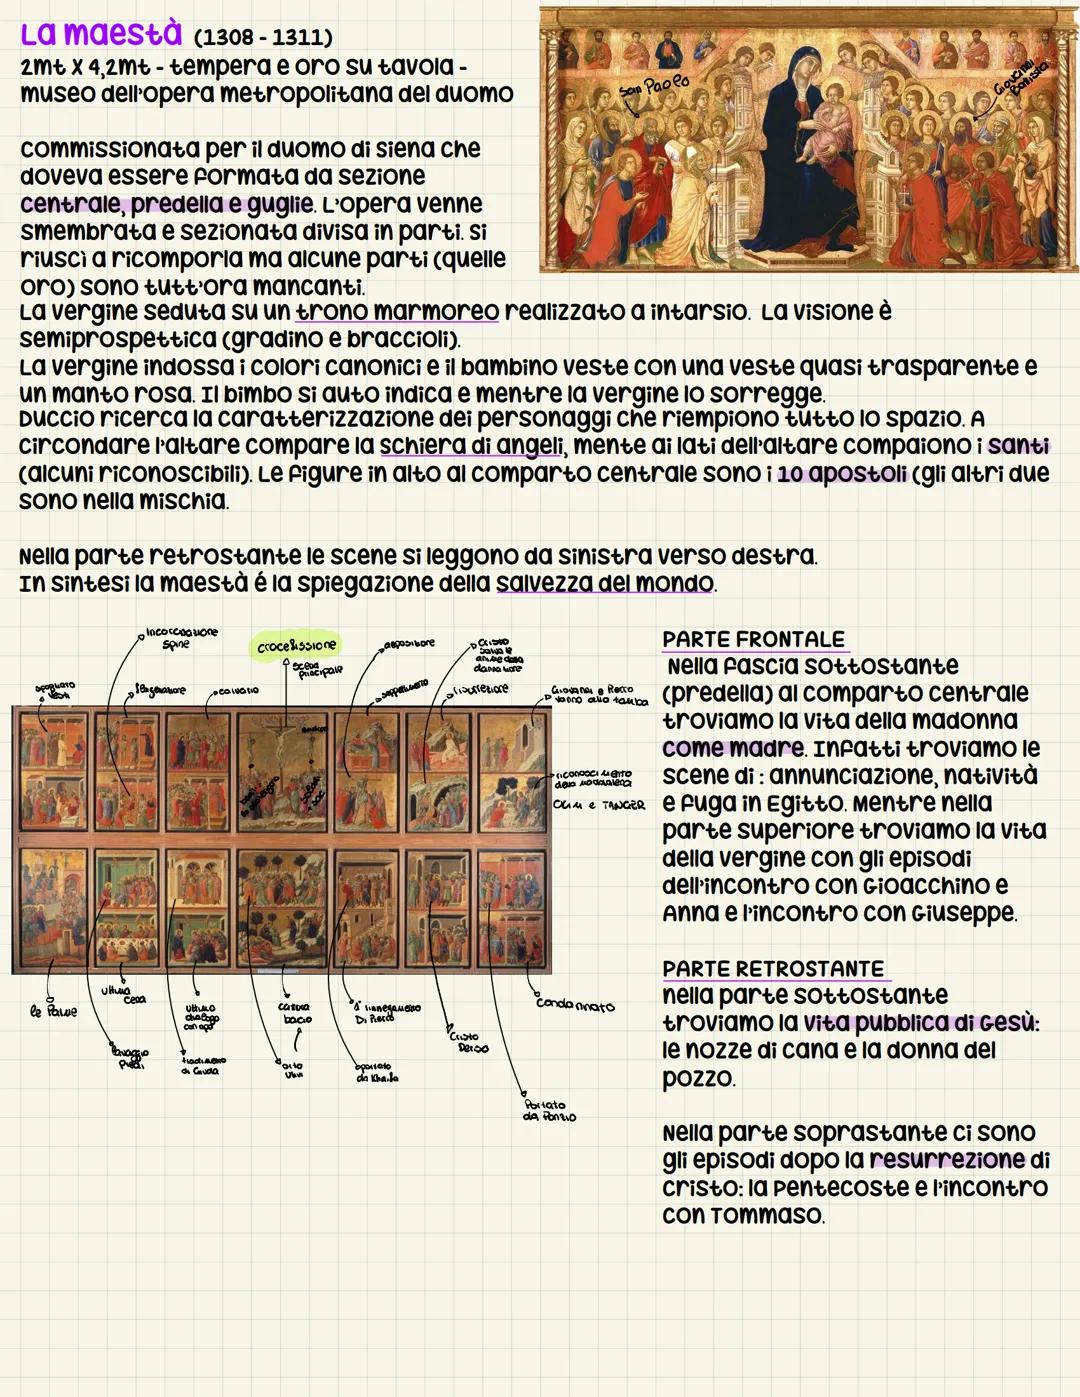 La maestà (1308 - 1311)
2mt X 4,2mt - tempera e oro su tavola -
museo dell'opera metropolitana del duomo
commissionata per il duomo di siena che
doveva essere formata da sezione
centrale, predella e guglie. L'opera venne
smembrata e sezionata divisa in parti. Si
riuscì a ricomporla ma alcune parti (quelle
oro) sono tutt'ora mancanti.
La vergine seduta su un trono marmoreo realizzato a intarsio. La visione è
semiprospettica (gradino e braccioli).
La vergine indossa i colori canonici e il bambino veste con una veste quasi trasparente e
un manto rosa. Il bimbo si auto indica e mentre la vergine lo sorregge.
Duccio ricerca la caratterizzazione dei personaggi che riempiono tutto lo spazio. A
circondare l'altare compare la schiera di angeli, mente ai lati dell'altare compaiono i santi
(alcuni riconoscibili). Le figure in alto al comparto centrale sono i 10 apostoli (gli altri due
sono nella mischia.
Nella parte retrostante le scene si leggono da sinistra verso destra.
In sintesi la maestà é la spiegazione della salvezza del mondo.
San Paolo
Giovanni
Battista
incoronazione
spine
crocefissione
scena
principale
deposizione
Cristo
salva le
anime dalla
dannazione
spogliato
vesti
flagellazione
calvario
seppellimento
risurrezione
Giovanni e Pietro
vanno alla tomba
riconoscimento
della maddalena
le Palme
ultima
cena
ultimo
dialogo
con apo
cattura
bacio
1° rinnegamento
Di Pietro
condannato
lavaggio
Piedi
tradimento
di Giuda
orto
ulivi
Cristo
Deriso
Portato
da Ponzio
PARTE FRONTALE
Nella fascia sottostante
(predella) al comparto centrale
troviamo la vita della madonna
come madre. Infatti troviamo le
scene di : annunciazione, natività
e fuga in Egitto. Mentre nella
parte superiore troviamo la vita
della vergine con gli episodi
dell'incontro con Gioacchino e
Anna e l'incontro con Giuseppe.
PARTE RETROSTANTE
nella parte sottostante
troviamo la vita pubblica di Gesù:
le nozze di cana e la donna del
pozzo.
Nella parte soprastante ci sono
gli episodi dopo la resurrezione di
cristo: la Pentecoste e l'incontro
con Tommaso.